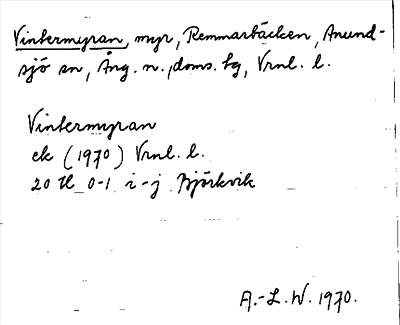 Vintermyran, myr, Remmarbäcken, Anund-
sjö sn, Ång. n., doms. lg, Vrnl. l.
Vintermyran
ek (1970) Vrnl. l.
20 H 0-1 i-j Björkvik
A.-L. W. 1970.